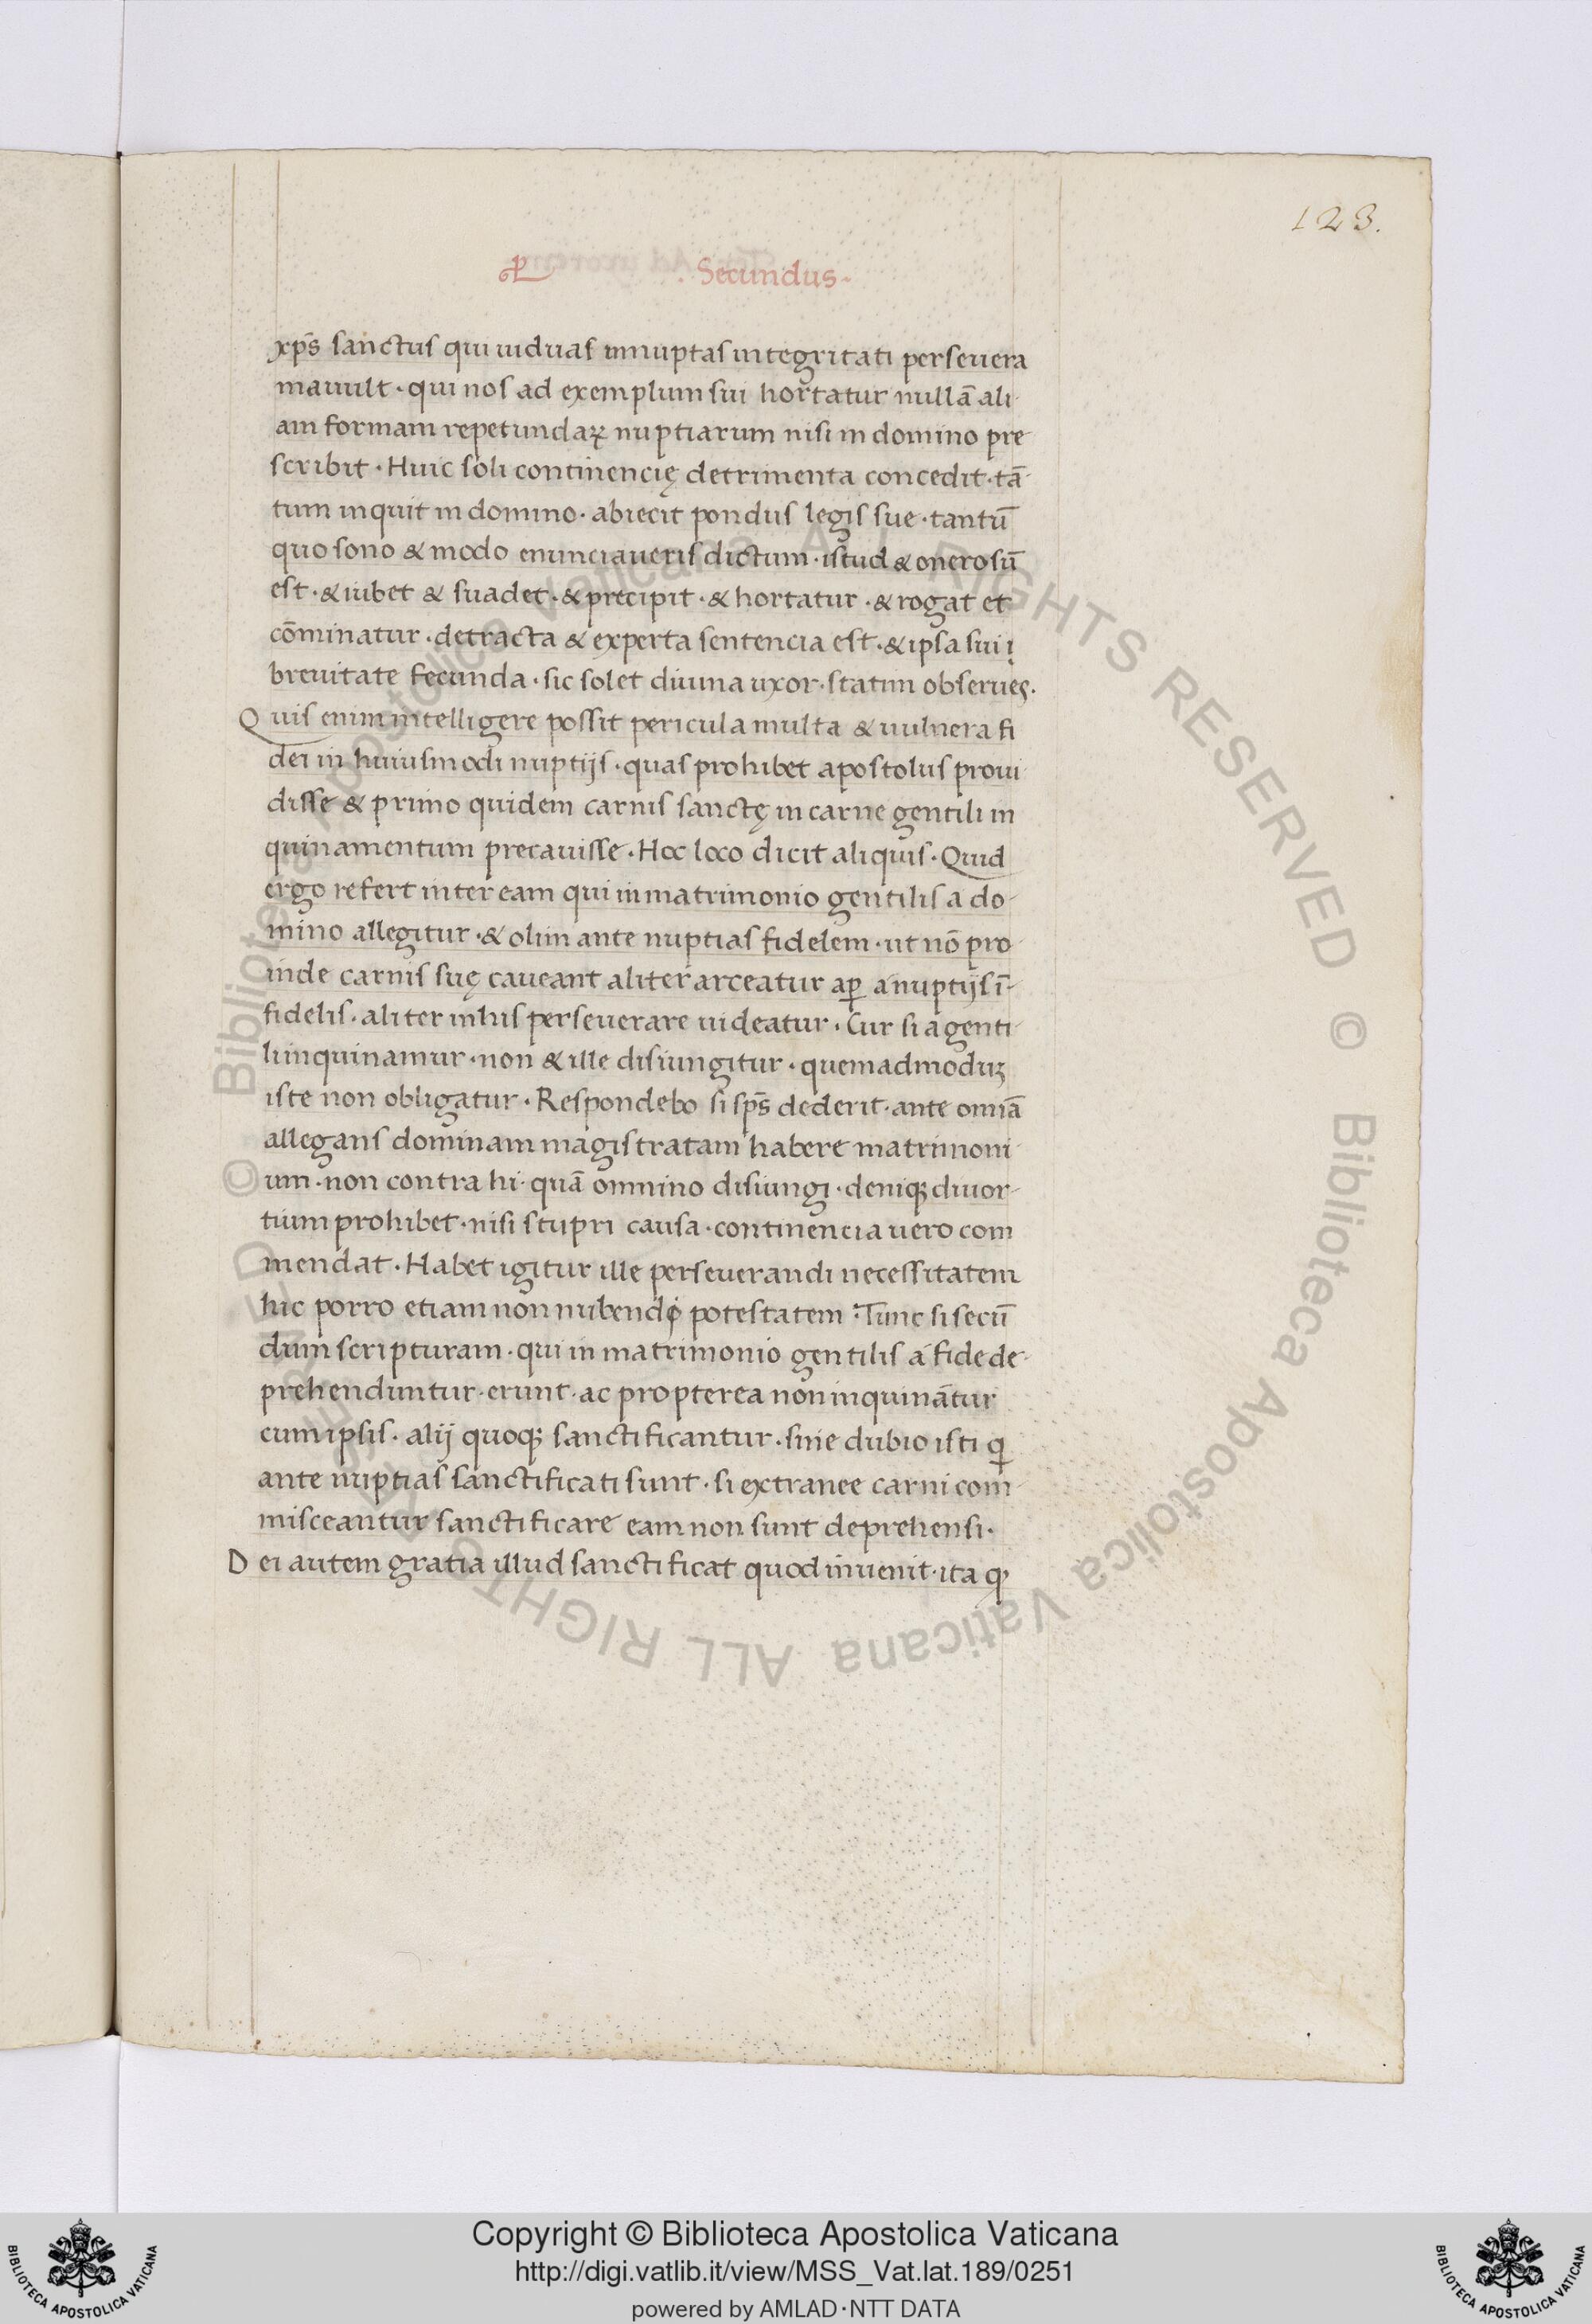 123.
.Secundus.
xp̄s sanctus qui uiduas innuptas integritati perseuera
mauult · qui nos ad exemplum sui hortatur nullā ali
am formam repetundaꝝ nuptiarum nisi in domino pre
scribit · Huic soli continencię detrimenta concedit · tā
tum inquit in domino · abiecit pondus legis sue · tantū
quo sono & modo enunciaueris dictum · istud & onerosū
est · & iubet & suadet · & precipit · & hortatur · & rogat et
cōminatur · detracta & experta sentencia est · & ipsa sui i
breuitate fecunda · sic solet diuina uxor · statim obserues.
Quis enim intelligere possit pericula multa & uulnera fi
dei in huiusmodi nuptijs · quas prohibet apostolus proui
disse & primo quidem carnis sanctę in carne gentili in
quinamentum precauisse · Hoc loco dicit aliquis · Quid
ergo refert inter eam qui in matrimonio gentilis a do-
mino allegitur · & olim ante nuptias fidelem · ut nō pro
inde carnis suę caueant aliter arceatur aꝑ a nuptijs ī-
fidelis · aliter in his perseuerare uideatur · Cur si a genti
li inquinamur · non & ille disiungitur · quemadmoduꝫ
iste non obligatur · Respondebo si sp̄s dederit · ante omiā
allegans dominam magistratam habere matrimoni
um · non contrahi · quā omnino disiungi · deniqꝫ diuor-
tium prohibet · nisi stupri causa · continencia uero com
mendat · Habet igitur ille perseuerandi necessitatem
hic porro etiam non nubendi potestatem · Tunc si secū
dum scripturam · qui in matrimonio gentilis a fide de-
prehenduntur · erunt · ac propterea non inquinātur
cum ipsis · alij quoqꝫ sanctificantur · sine dubio isti q
ante nuptias sanctificati sunt · si extranee carni com
misceantur sanctificare eam non sunt deprehensi ·
Dei autem gratia illud sanctificat quod inuenit · ita qꝫ
Copyright © Biblioteca Apostolica Vaticana
http://digi.vatlib.it/view/MSS_Vat.lat.189/0251
powered by AMLAD·NTT DATA